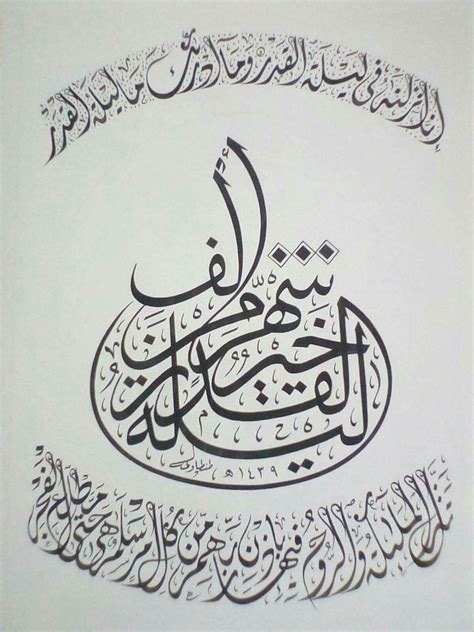 إنا أنزلنه في ليلة القدر وما أدريك ما ليلة القدر
ليلة القدر خير من ألف شهر
١٤٣٩هـ
تنزل الملئكة والروح فيها بإذن ربهم من كل أمر سلم هي حتى مطلع الفجر